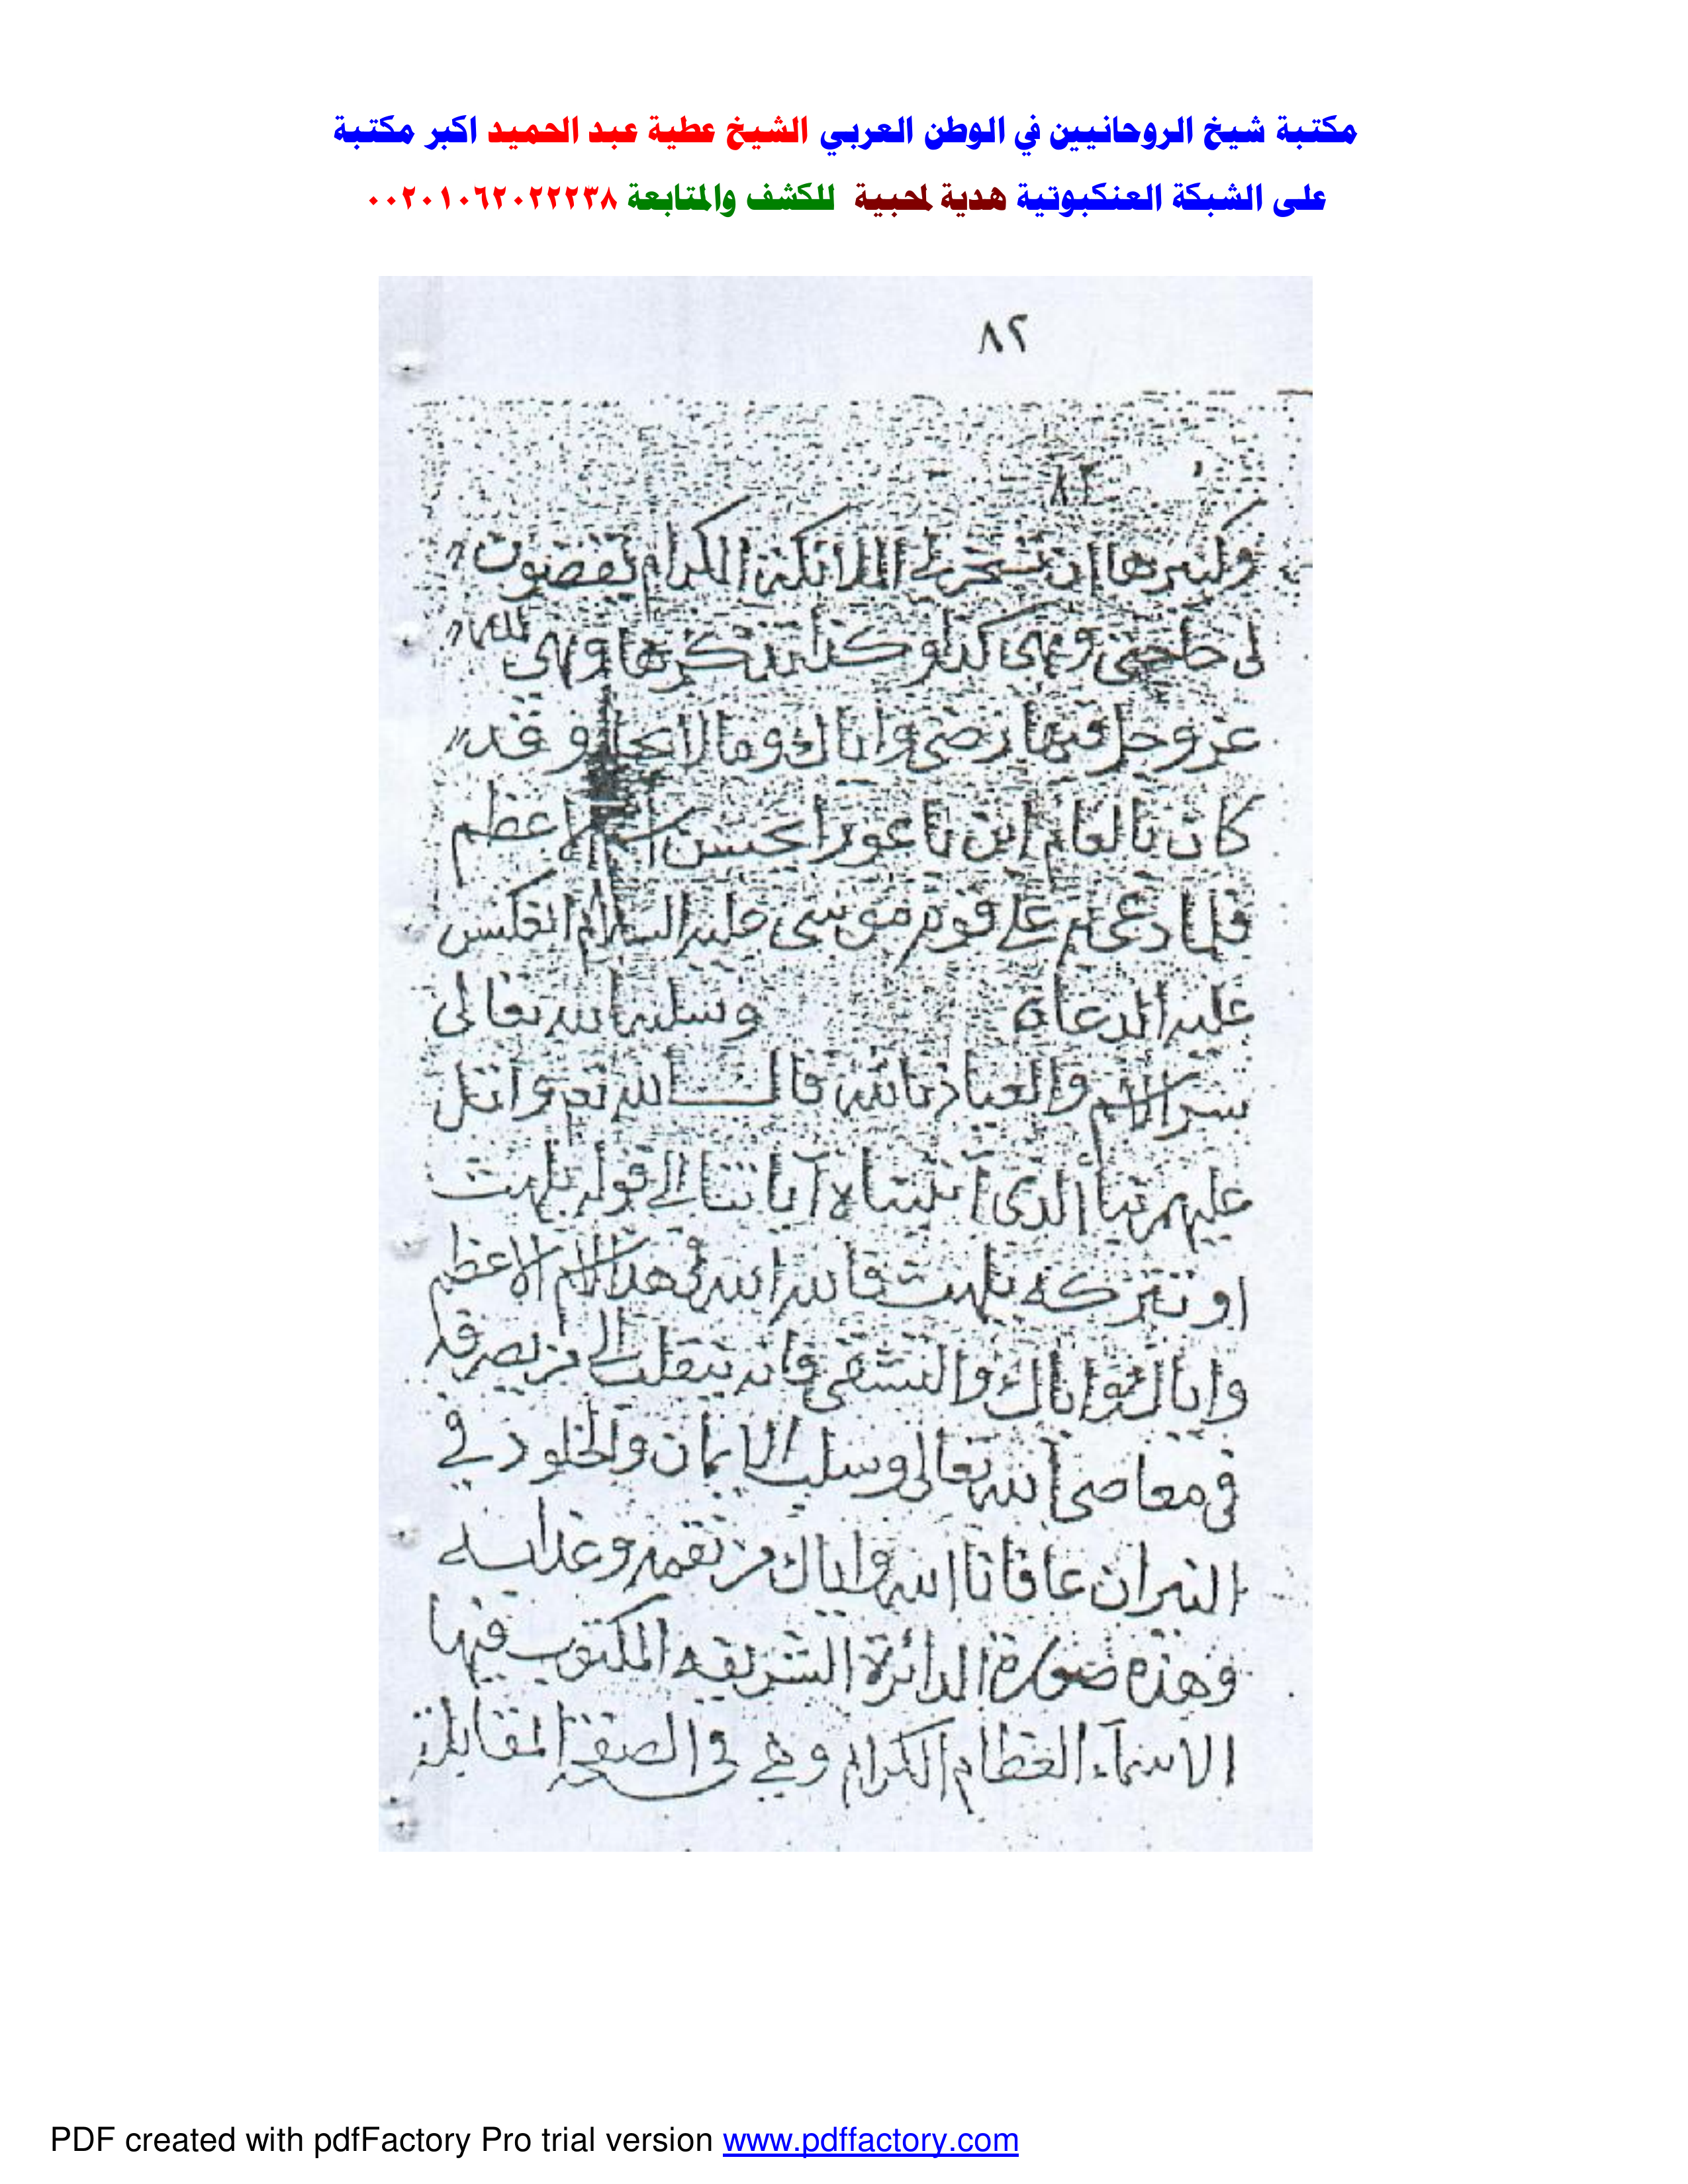 مكتبة شيخ الروحانيين في الوطن العربي الشيخ عطية عبد الحميد اكبر مكتبة
على الشبكة العنكبوتية هدية لمحبية للكشف والمتابعة ٠٠٢٠١٠٦٢٠٢٢٢٣٨
٨٢
٨٢
ان تسخر لى الملائكة الكرام يقضون
لى حاجتى وهى كذا وكذا تذكرها وهى لله
عز وجل فيها رضى واياك وما لا يحل وقد
كان بالعام ابن باعورا يحسن اسم الاعظم
فلما دعى به على قوم موسى عليه السلام انعكس
عليه الدعاة وسلبه الله تعالى
سر الاسم والعياذ بالله قال الله تع واتل
عليهم نبأ الذى آتيناه آياتنا الى قوله يلهث
او تتركه يلهث فالله الله فى هذا الاسم الاعظم
واياك واياك والتشفى فانه ينقلب الى من يصرفه
فى معاصى الله تعالى وسلب الايمان والخلود في
النيران عافانا الله واياك من نقمه وعذابه
وهذه صورة الدائرة الشريفه المكتوب فيها
الاسماء العظام الكرام وهي فى الصفحة المقابلة
PDF created with pdfFactory Pro trial version www.pdffactory.com